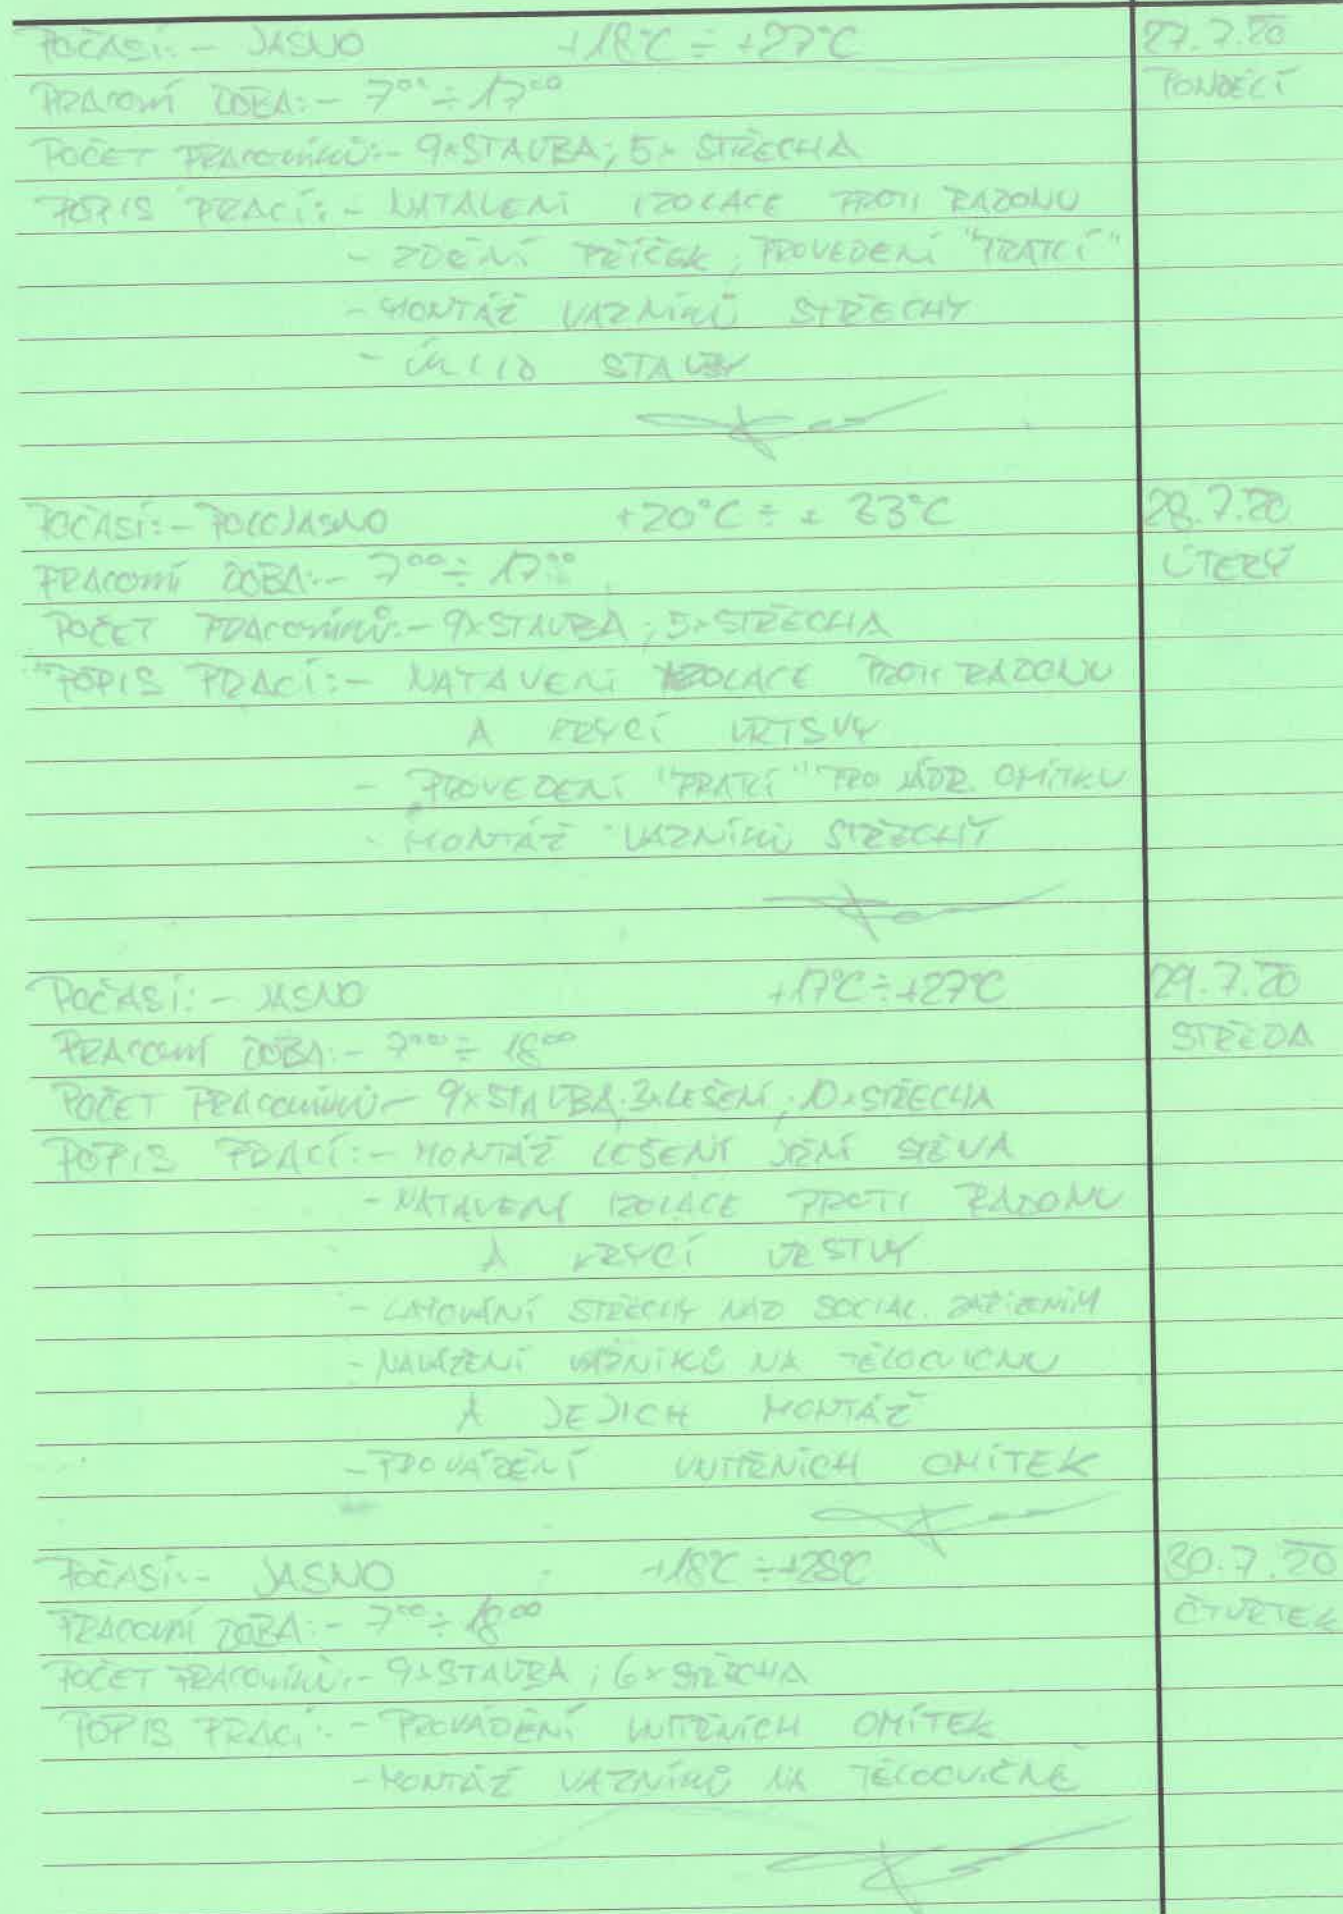 POČASÍ: - JASNO +18°C ÷ +27°C 27.7.20
PRACOVNÍ DOBA: - 7°° ÷ 17°° PONDĚLÍ
POČET PRACOVNÍKŮ: - 9×STAVBA; 5× STŘECHA
POPIS PRACÍ: - NATAVENÍ IZOLACE PROTI RADONU
- ZDĚNÍ PŘÍČEK; PROVEDENÍ "PRATCÍ"
- MONTÁŽ VAZNÍKŮ STŘECHY
- ÚKLID STAVBY
POČASÍ: - POLOJASNO +20°C ÷ + 23°C 28.7.20
PRACOVNÍ DOBA: - 7°° ÷ 17°° ÚTERÝ
POČET PRACOVNÍKŮ: - 9×STAVBA; 5×STŘECHA
POPIS PRACÍ: - NATAVENÍ IZOLACE PROTI RADONU
A KRYCÍ VRTSVY
- PROVEDENÍ PRO JÁDR. OMÍTKU
- MONTÁŽ VAZNÍKŮ STŘECHY
POČASÍ: - JASNO +17°C ÷ +27°C 29.7.20
PRACOVNÍ DOBA: - 7°° ÷ 18°° STŘEDA
POČET PRACOVNÍKŮ - 9×STAVBA; 3×LEŠENÍ; 10×STŘECHA
POPIS PRACÍ: - MONTÁŽ LEŠENÍ JIŽNÍ STĚNA
- NATAVENÍ IZOLACE PROTI RADONU
A KRYCÍ VRSTVY
- LAŤOVÁNÍ STŘECHY NAD SOCIAL. ZAŘÍZENÍM
- NAVÁŽENÍ VAZNÍKŮ NA TĚLOCVIČNU
A JEJICH MONTÁŽ
- PROVÁDĚNÍ VNITŘNÍCH OMÍTEK
POČASÍ: - JASNO +18°C ÷ +28°C 30.7.20
PRACOVNÍ DOBA: - 7°° ÷ 18°° ČTVRTEK
POČET PRACOVNÍKŮ: - 9×STAVBA; 6× STŘECHA
POPIS PRACÍ: - PROVÁDĚNÍ VNITŘNÍCH OMÍTEK
- MONTÁŽ VAZNÍKŮ NA TĚLOCVIČNĚ